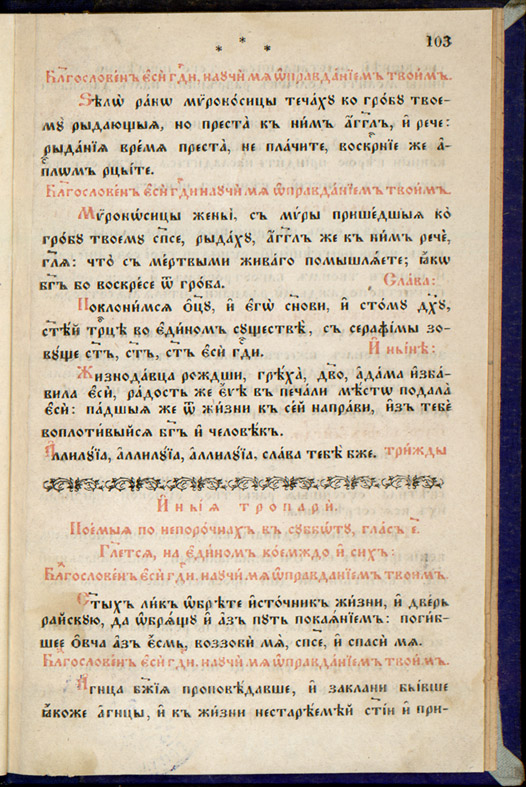 103
* * *
Бл҃гословє́нъ є҆сѝ гдⷭ҇и, научи́ мѧ ѡ҆правда́нїємъ твои̑мъ.
Ѕѣлѡ̀ ра́нѡ мѷроно́сицы теча́хꙋ ко гро́бꙋ твое-
мꙋ̀ рыда́ющыѧ, но преста̀ къ ни̑мъ а҆́гг҃лъ, и҆ речѐ:
рыда́нїѧ вре́мѧ преста̀, не пла́чите, воскрⷭ҇нїе же а҆-
пⷭ҇лѡмъ рцы́те.
Бл҃гословє́нъ є҆сѝ гдⷭ҇и научи́ мѧ ѡ҆правда́нїємъ твои̑мъ.
Мѷронѡ́сицы жєны̀, съ мѵ́ры прише́дшыѧ ко̀
гро́бꙋ твоемꙋ̀ сп҃се, рыда́хꙋ, а҆́гг҃лъ же къ ни̑мъ речѐ,
гл҃ѧ: что̀ съ ме́ртвыми жива́го помышлѧ́ете; ꙗ҆́кѡ
бг҃ъ бо воскре́се ѿ гро́ба. Сла́ва:
Поклони́мсѧ ѻ҆ц҃ꙋ̀, и҆ є҆гѡ̀ сн҃ови, и҆ ст҃о́мꙋ дх҃ꙋ,
ст҃ѣ́й трⷪ҇цѣ во є҆ди́номъ сꙋществѣ̀, съ серафі̑мы зо-
вꙋ́ще ст҃ъ, ст҃ъ, ст҃ъ є҆сѝ гдⷭ҇и. И҆ ны́нѣ:
Жизнода́вца ро́ждши, грѣха̀, дв҃о, а҆да́ма и҆зба́-
вила є҆сѝ, ра́дость же є҆́ѵѣ въ печа́ли мѣ́стѡ подала̀
є҆сѝ: па́дшыѧ же ѿ жи́зни къ се́й напра́ви, и҆зъ тебє̀
воплоти́выйсѧ бг҃ъ и҆ человѣ́къ.
А҆ллилꙋ́їа, а҆ллилꙋ́їа, а҆ллилꙋ́їа, сла́ва тебѣ̀ бж҃е. три́жды
И҆ны́ѧ тропари̑.
Пое́мыѧ по непоро́чнахъ въ сꙋббѡ́тꙋ, гла́съ є҃.
Гл҃етсѧ, на є҆ди́номъ ко́емждо и҆ си́хъ:
Бл҃гословє́нъ є҆сѝ гдⷭ҇и. научи́ мѧ ѡ҆правда́нїємъ твои̑мъ.
Ст҃ы́хъ ли́къ ѡ҆брѣ́те и҆сто́чникъ жи́зни, и҆ две́рь
ра́йскꙋю, да ѡ҆брѧ́щꙋ и҆ а҆́зъ пꙋ́ть покаѧ́нїемъ: поги́б-
шее ѻ҆вча̀ а҆́зъ є҆́смь, воззови́ мѧ, сп҃се, и҆ спаси́ мѧ.
Бл҃гословє́нъ є҆сѝ гдⷭ҇и. научи́ мѧ ѡ҆правда́нїємъ твои̑мъ.
А҆́гнца бж҃їѧ проповѣ́давше, и҆ закла́ни бы́вше
ꙗ҆́коже а҆́гнцы, и҆ къ жи́зни нестарѣ́емѣй ст҃і́и и҆ при-